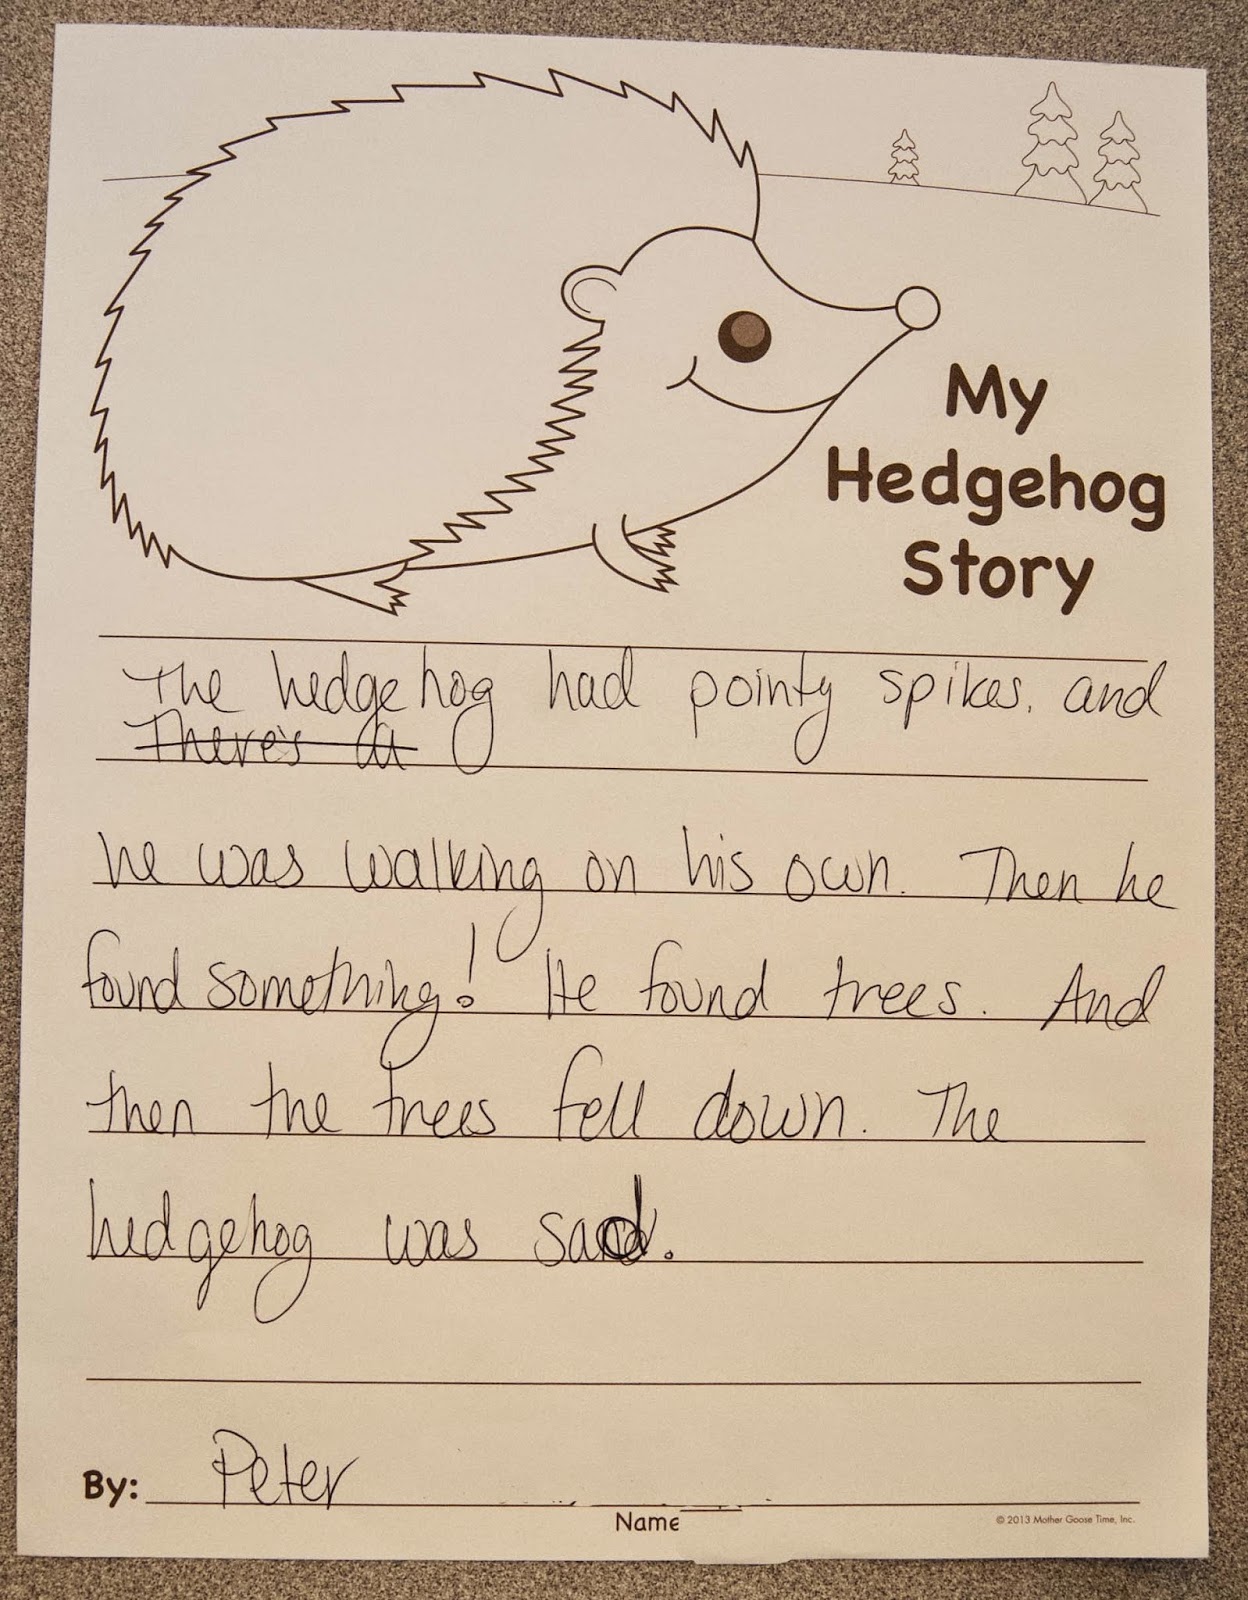 My
Hedgehog
Story
The hedgehog had pointy spikes, and
There's a
he was walking on his own. Then he
found something! He found trees. And
then the trees fell down. The
hedgehog was sad.
By: Peter
Name
© 2013 Mother Goose Time, Inc.